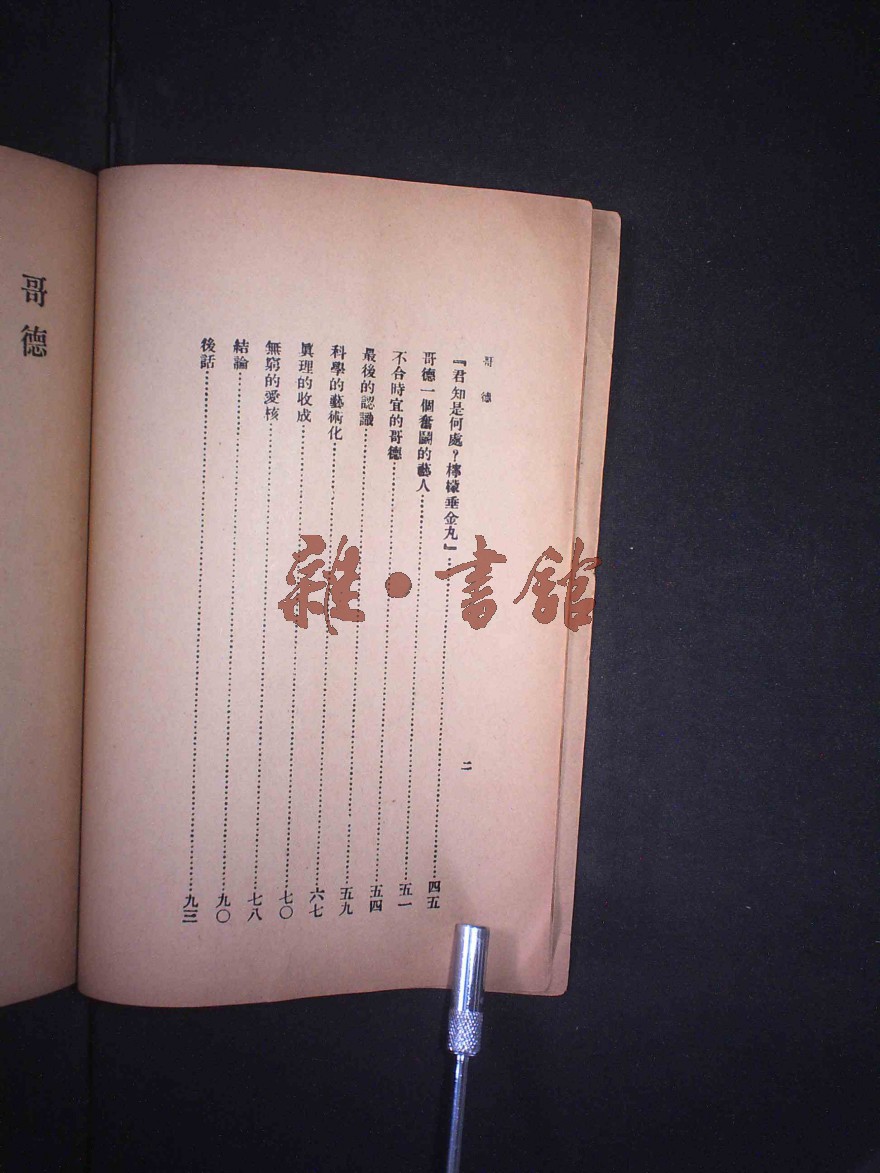 哥德
二
『君知是何處？檸檬垂金丸』……四五
哥德一個奮鬭的藝人……五一
不合時宜的哥德……五四
最後的認識……五九
科學的藝術化……六七
眞理的收成……七〇
無窮的愛核……七八
結論……九〇
後話……九三
哥德
雜·書館